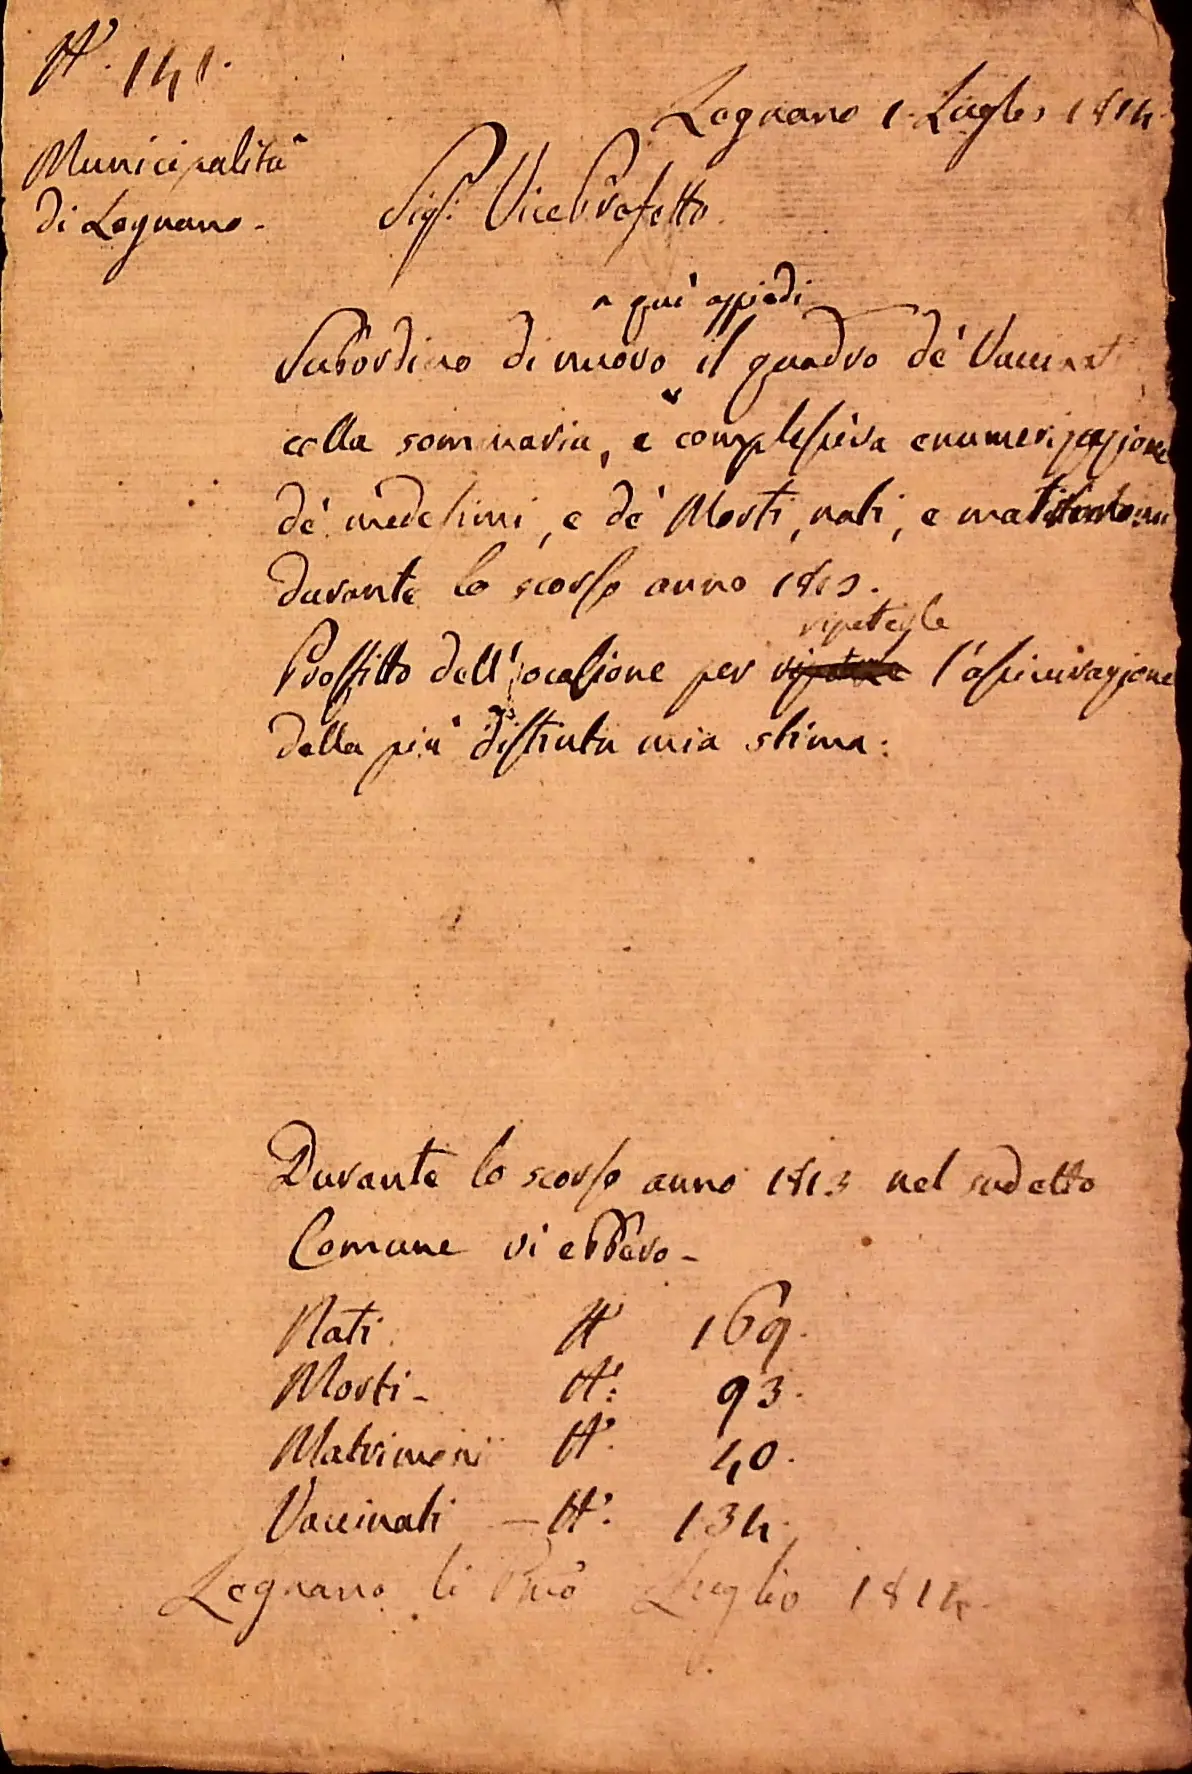 N.° 141.
Legnano 1. Luglio 1814.
Municipalità
di Legnano.
Sigr. VicePrefetto.
a quì appiedi
Subordino di nuovo il quadro de' Vaccinati
colla sommaria, e complessiva enumerizazione
de' medesimi, e de' Morti, nati, e
durante lo scorso anno 1813.
ripetegle
Proffitto dell'ocasione per l'assicurazione
della più distinta mia stima.
Durante lo scorso anno 1813 nel sudetto
Comune vi ebbero -
Nati N.° 169.
Morti - N.° 93.
Matrimoni N.° 40.
Vaccinati - N.° 134.
Legnano li Pmo Luglio 1814.